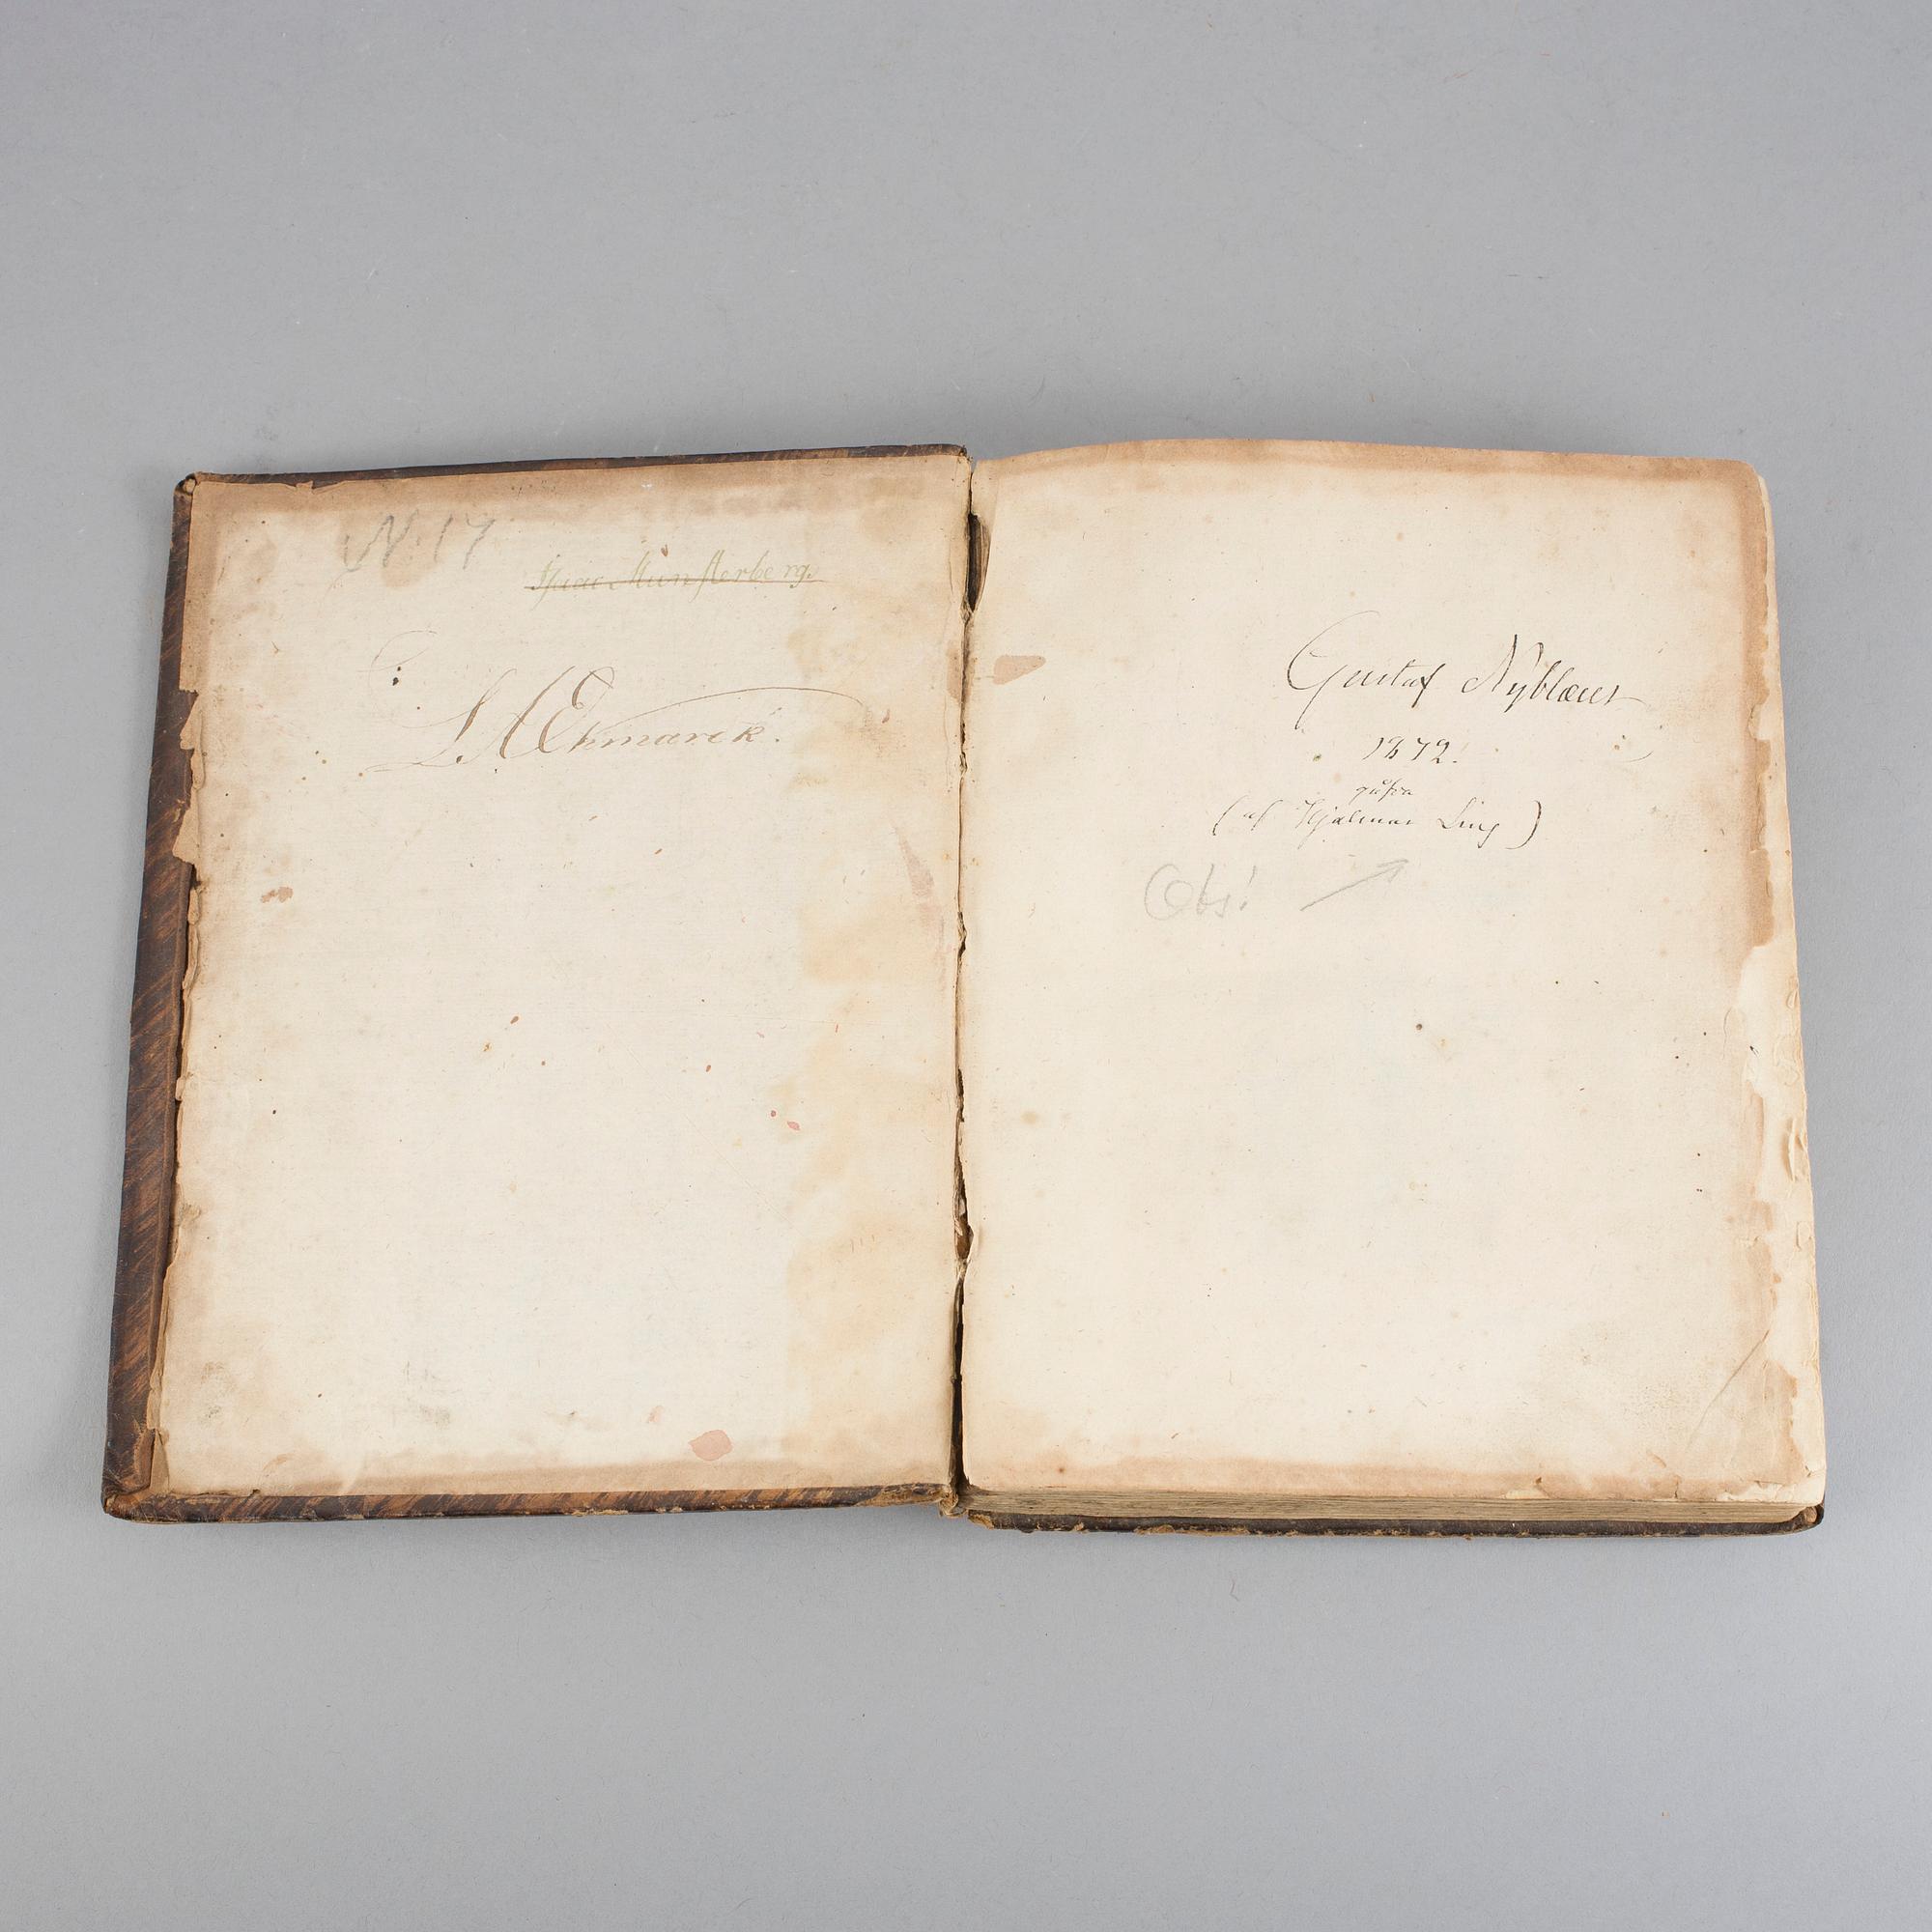 N. 17
Isaac Munsterberg.
L A Ehmarck.
Gustaf Nyblæus
1872.
gåfva
(af Hjalmar Ling)
Obs!